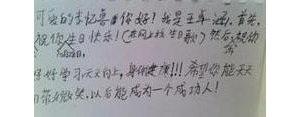 可爱的李忆喜 你好！我是王车涵，首先，
祝你生日快乐！（在网上找生日歌）然后，祝你
好好学习，天天向上，身体健康！！！希望你能天天
带着微笑，以后能成为一个成功人！